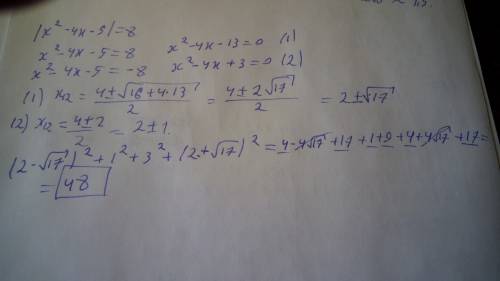 |x²-4x-5|=8
x²-4x-5=8 x²-4x-13=0 (1)
x²-4x-5=-8 x²-4x+3=0 (2)
(1) x₁₂ = (4±√(16+4·13))/2 = (4±2√17)/2 = 2±√17
(2) x₁₂ = (4±2)/2 = 2±1
(2-√17)²+1²+3²+(2+√17)² = 4-4√17+17+1+9+4+4√17+17=
= 48